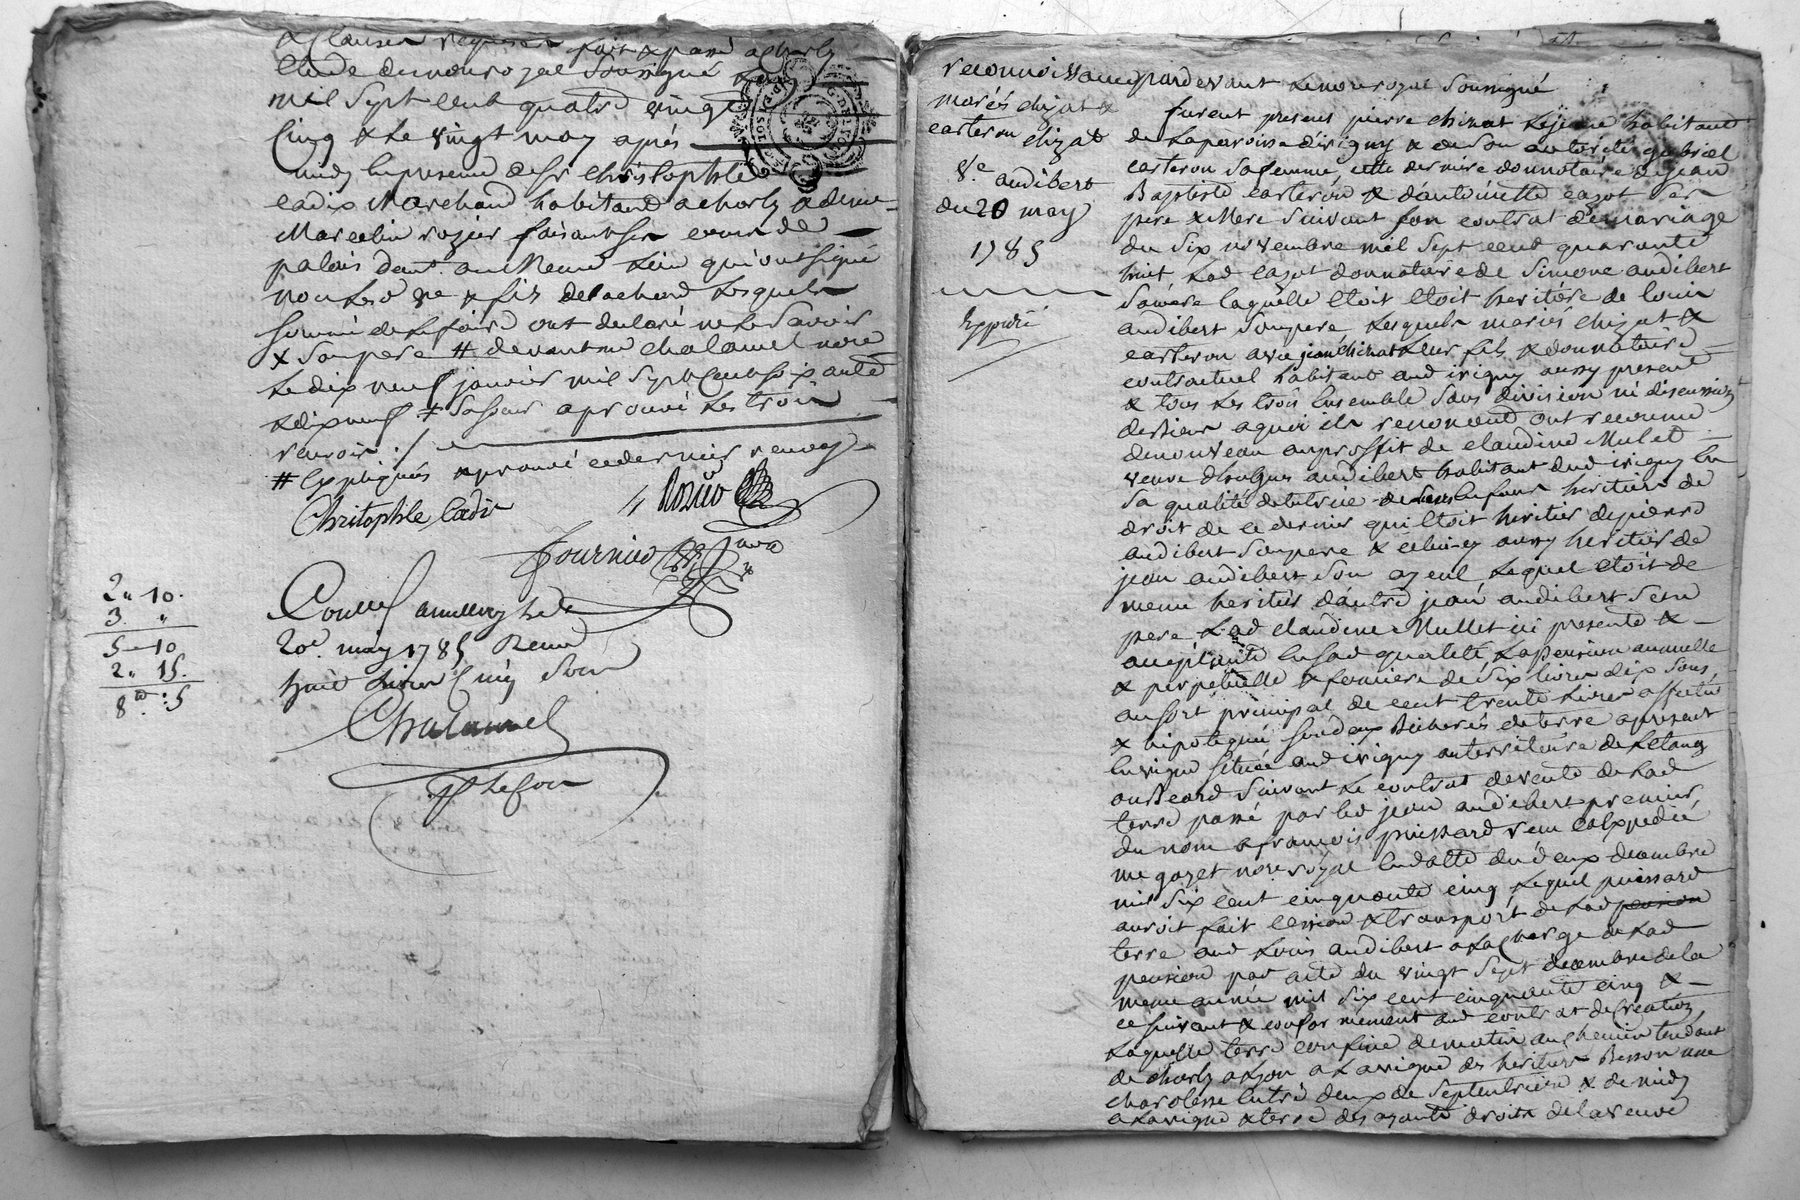 & Clauses requises fait & passé a charly
Etude du no.re royal soussigné
mil sept cent quatre vingt
cinq & le vingt may après
midy en presence de sr christophle
cadix Marchand habitant a charly &
Marcelin rozier
palais demt. au meme lieu qui ont signé
non led. & fils lesquels
sommé de le faire ont declaré ne le savoir
x son pere # devant me chalamel no.re
le dix neuf janvier mil sept cent soixante
& dix neuf # approuvé les trois
renvois ./.
# expliqués approuvé ce dernier renvoy
Christophle Cadix Rosier
Fournier
2 " 10.
3 "
5 - 10
2 " 15.
8 lt : 5
Conllé a millery le
20e. may 1785 Recu
huit livres cinq sous
Chalamel
reconnoissance
mariés chizat &
carteron chizat
Sr. audibert
du 20 may
1785
Expedié
pardevant le no.re royal soussigné
furent presens pierre chizat le jeune habitant
de la paroisse d'irigny & de son autorité
carteron sa femme, cette derniere donnataire de jean
Baptiste carteron & d'antoinette cazot ses
pere & Mere suivant son contrat de mariage
du six novembre mil sept cent quarante
huit, lad. cazot donnataire de simone audibert
sa mere laquelle etoit etoit heritiere de louis
audibert son pere, lesquels mariés chizat &
carteron avec jean chizat leur fils & donnataire
contractuel habitant aud. irigny aussy present
& tous les trois ensemble sans division ni discussion
de biens a quoi ils renoncent ont reconnu
de nouveau au proffit de claudine Mulet
veuve d'hugues audibert habitant aud. irigny en
sa qualité de tutrice de leurs enfans heritiers de
droit de ce dernier qui etoit heritier de pierre
audibert son pere & celui cy aussy heritier de
jean audibert son ayeul, lequel etoit de
meme heritier d'autre jean audibert son
pere lad. claudine Mullet ici presente &
acceptante en sad. qualité, la pension annuelle
& perpetuelle & fonciere de six livres dix sous,
au sort principal de cent trente livres affectée
& hipotequée sur deux Bicherés de terre a present
en vigne située aud. irigny au territoire de l'etang
ou Beard suivant le contrat de vente de lad.
terre passé par led. jean audibert premier
du nom a francois puissard recu & expedié
me gazet no.re royal en datte du deux decembre
mil six cent cinquante cinq lequel puissard
auroit fait cession & transport de lad. pension
terre aud. louis audibert a la charge de lad.
pension par acte du vingt sept decembre de la
meme année mil six cent cinquante cinq &
ce suivant & conformement aud. contrat de creation,
laquelle terre confine de matin au chemin tendant
de charly a lyon a la vigne des heritiers Besson une
charolesse entre deux de septentrion & de midy
a la vigne & terre des ayants droits de la veuve